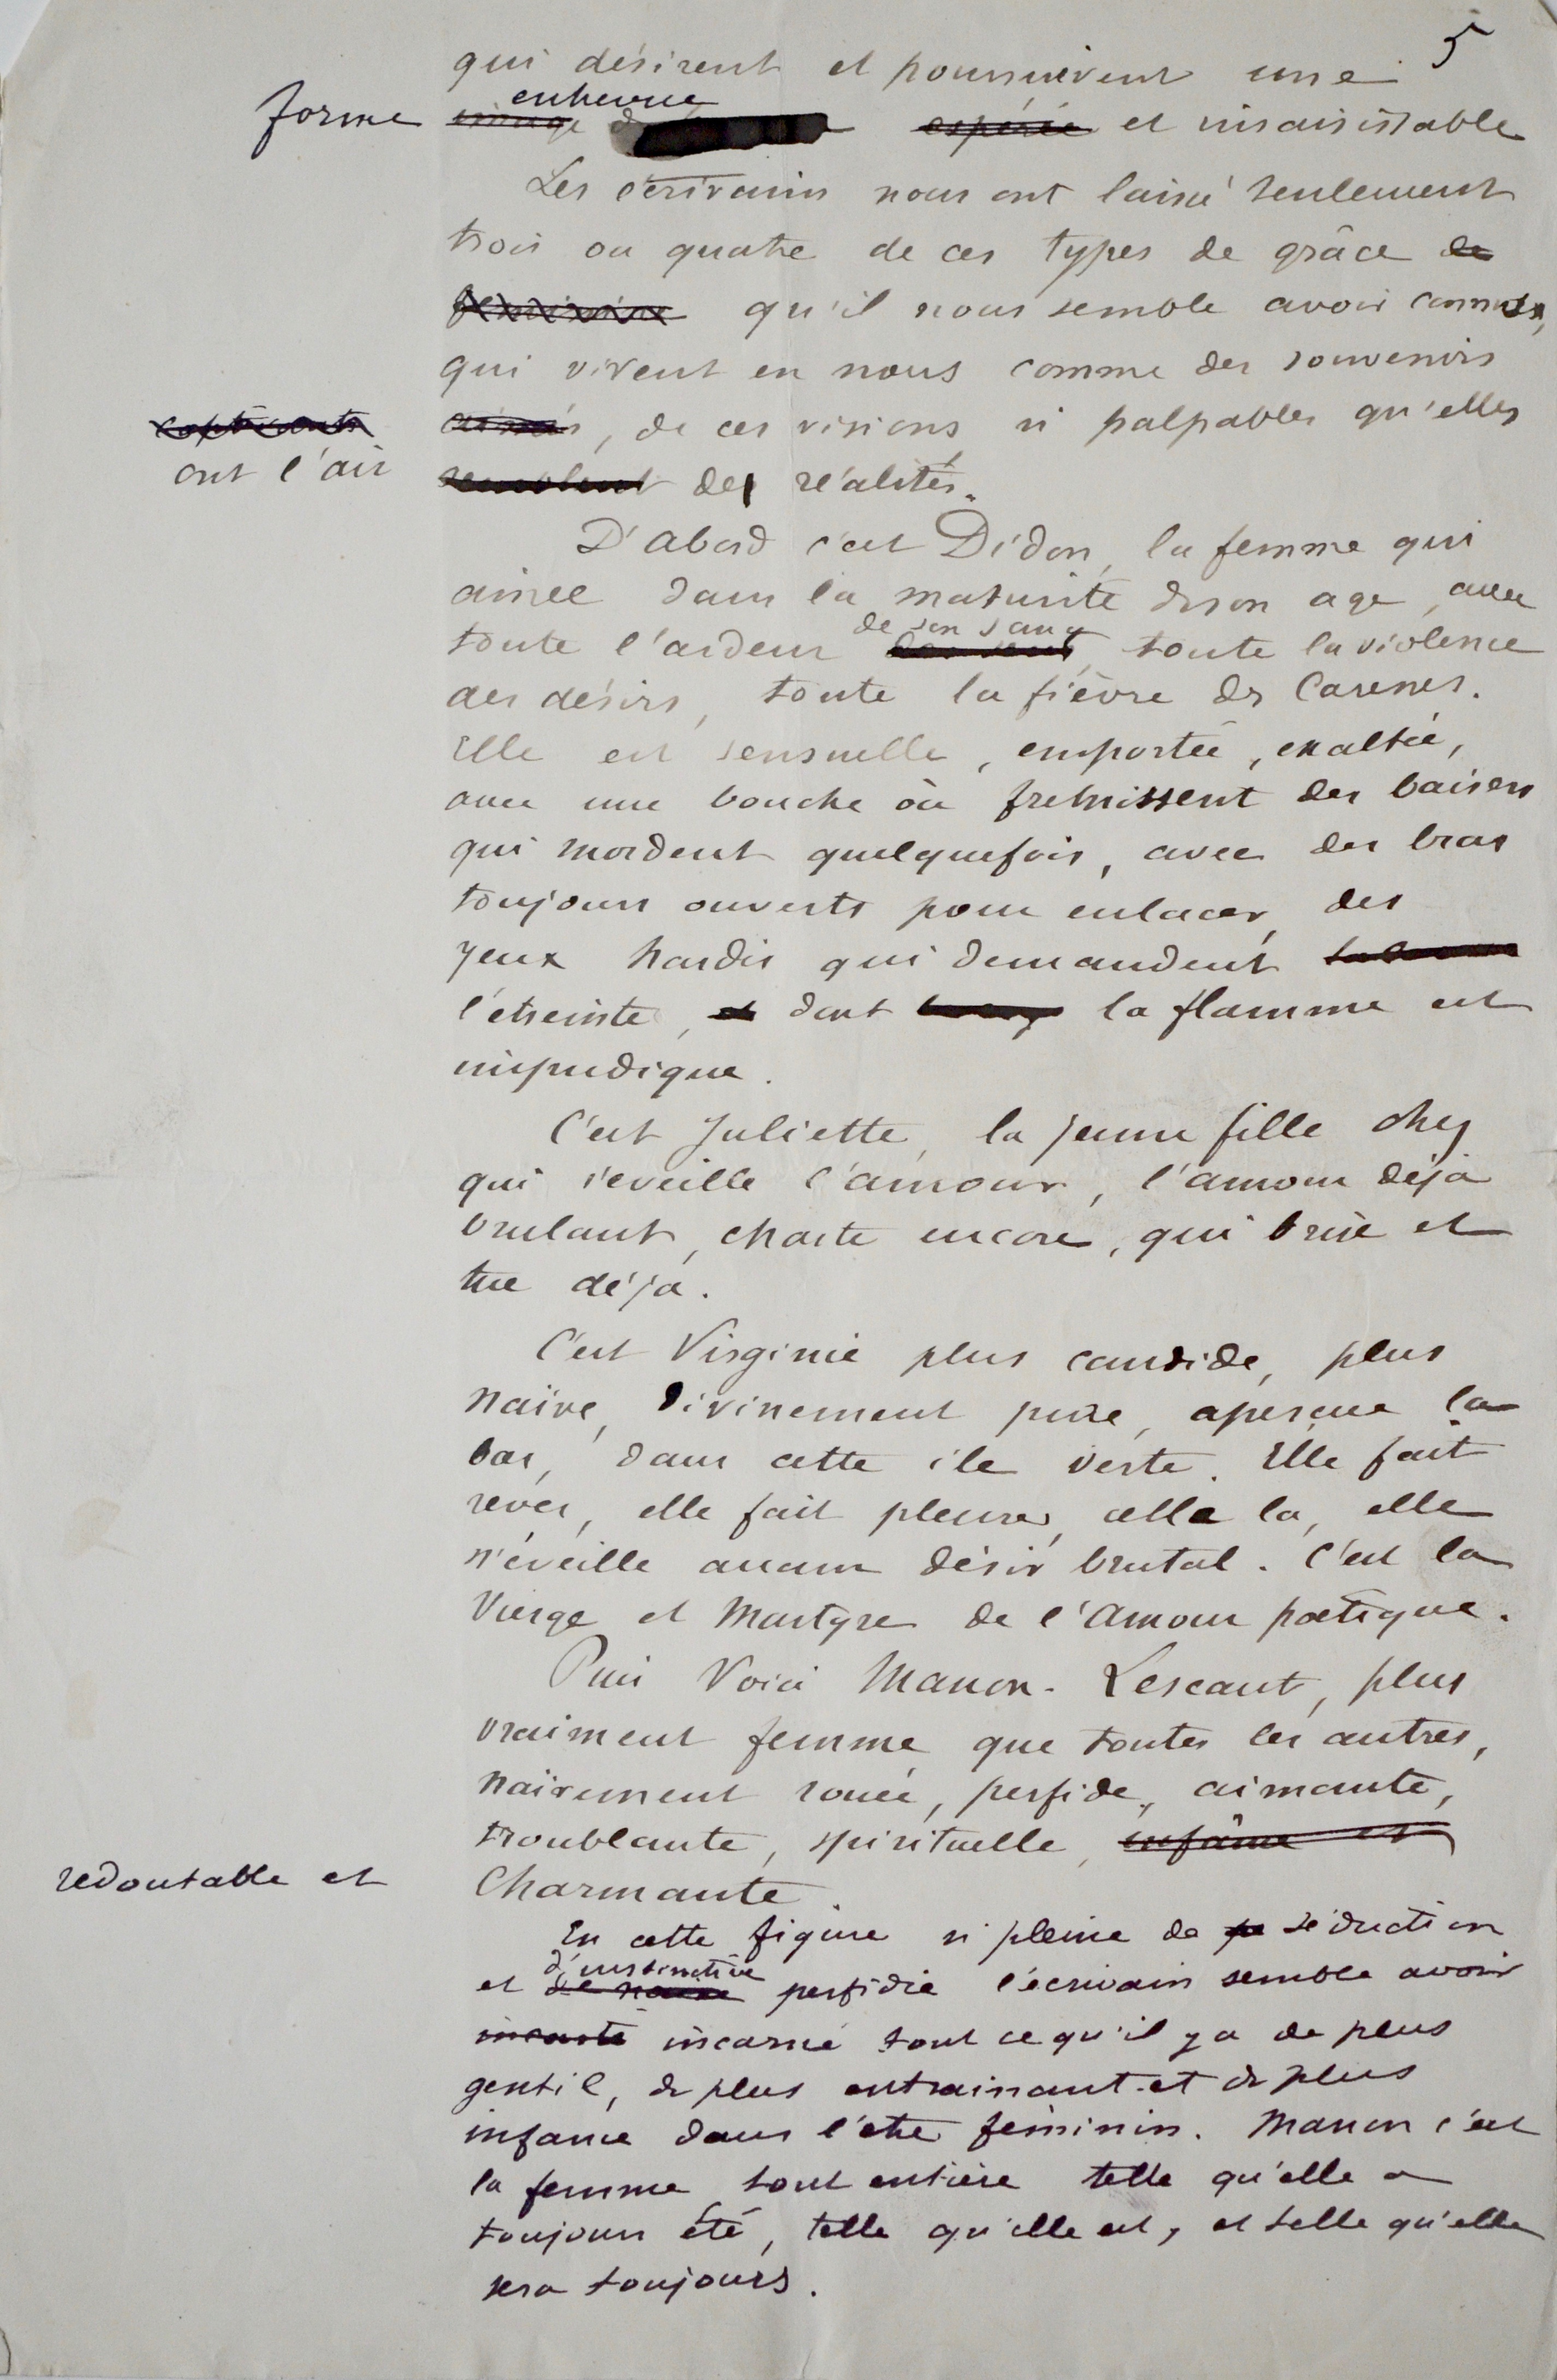 5
qui désirent et poursuivent une
forme image entrevue espérée et insaisissable
Les écrivains nous ont laissé seulement
trois ou quatre de ces types de grâce de
féminine qu'il nous semble avoir connus,
qui vivent en nous comme des souvenirs
captivants aimés, de ces visions si palpables qu'elles
ont l'air semblent des réalités.
D'abord c'est Didon, la femme qui
aime dans la maturité de son age, avec
de son sang
toute l'ardeur des sens, toute la violence
des désirs, toute la fièvre des Caresses.
Elle est sensuelle, emportée, exaltée,
avec une bouche où fremissent des baisers
qui mordent quelquefois, avec des bras
toujours ouverts pour enlacer, des
yeux hardis qui demandent
l'etreinte, et dont la flamme est
impudique.
C'est Juliette, la jeune fille chez
qui s'eveille l'amour, l'amour déjà
brulant, chaste encore, qui brise et
tue déjà.
C'est Virginie plus candide, plus
naïve, divinement pure, aperçue la
bas, dans cette ile verte. Elle fait
rever, elle fait pleurer, celle la, elle
n'éveille aucun désir brutal. C'est la
Vierge et Martyre de l'Amour poetique.
Puis Voici Manon-Lescaut, plus
vraiment femme que toutes les autres,
naïvement rouée, perfide, aimante,
troublante, spirituelle, infâme et
redoutable et Charmante.
En cette figure si pleine de séduction
d'instinctive
et de naïve perfidie l'écrivain semble avoir
incarné tout ce qu'il y a de plus
gentil, de plus entrainant et de plus
infame dans l'etre féminin. Manon c'est
la femme tout entière telle qu'elle a
toujours été, telle qu'elle est, et telle qu'elle
sera toujours.